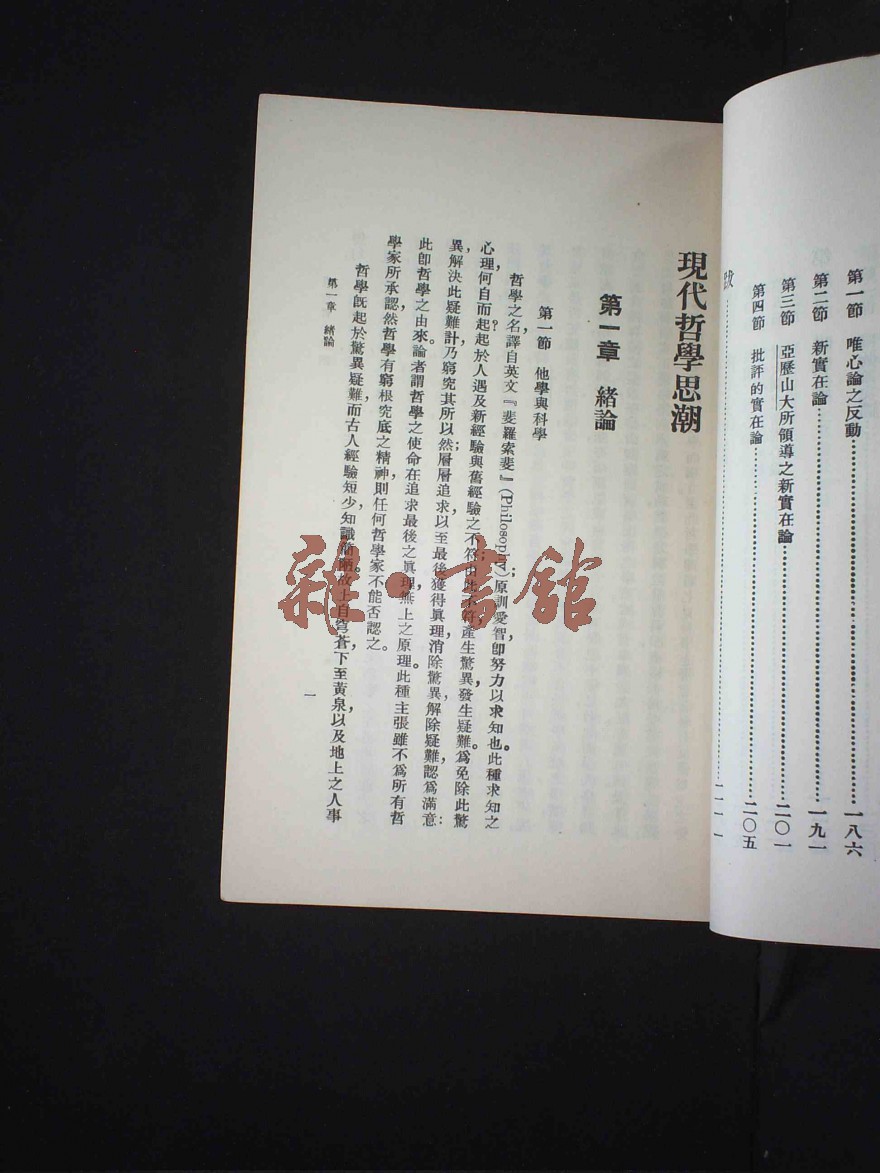 第一節　唯心論之反動……………………一八六
第二節　新實在論……………………一九一
第三節　亞歷山大所領導之新實在論……………………二〇一
第四節　批評的實在論……………………二〇五
……………………二一一
現代哲學思潮
第一章　緒論
第一節　他學與科學
哲學之名，譯自英文『斐羅索斐』(Philosophy)；原訓愛智，卽努力以求知也。此種求知之
心理，何自而起？起於人遇及新經驗與舊經驗之不符；由此不符產生驚異，發生疑難。爲免除此驚
異，解決此疑難計，乃窮究其所以然；層層追求，以至最後獲得眞理，消除驚異，解除疑難，認爲滿意：
此卽哲學之由來。論者謂哲學之使命，在追求最後之眞理，無上之原理。此種主張，雖不爲所有哲
學家所承認，然哲學有窮根究底之精神，則任何哲學家不能否認之。
哲學旣起於驚異疑難，而古人經驗短少，知識簡陋。故上自穹蒼，下至黃泉，以及地上之人事
第一章　緒論
一
雜·書館